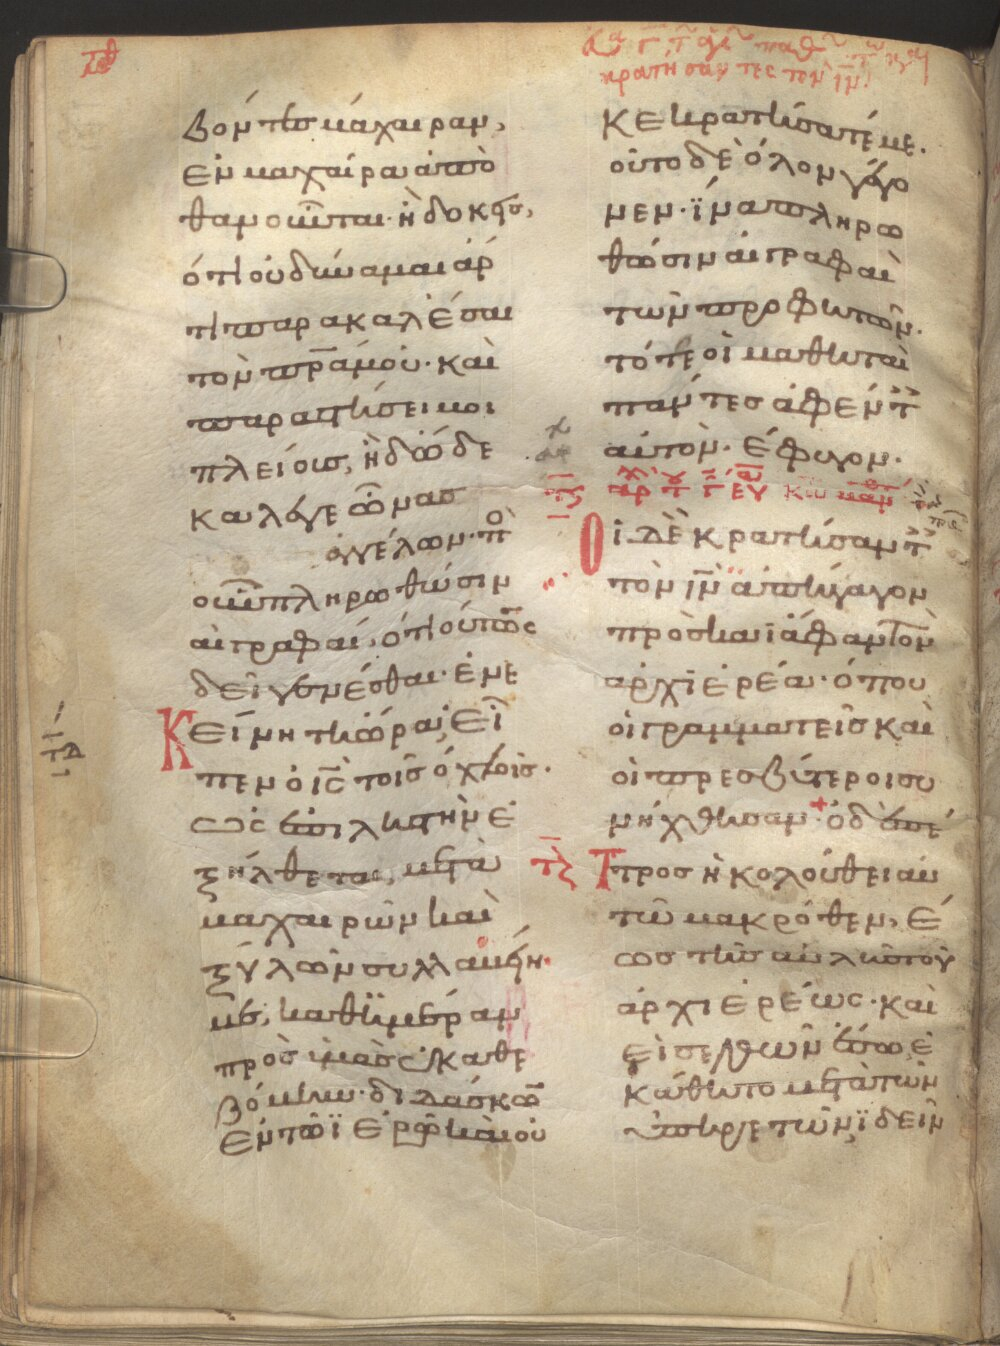 βόντες μάχαιραν,
ἐν μαχαίρα ἀπο
θανοῦνται· ἢ δοκεῖς,
ὅτι οὐ δύναμαι ἄρ
τι παρακαλέσαι
τὸν πρα μου· καὶ
παραστήσει μοι
πλείους, ἢ δώδε
κα λεγεῶνας
ἀγγέλων· πῶς
οὖν πληρωθῶσιν
αἱ γραφαί, ὅτι οὕτως
δεῖ γενέσθαι· ἐμε
Κείνη τῆ ὥρα, εἶ
πεν ὁ ις τοῖς ὄχλοις·
ὡς ἐπὶ ληστὴν ἐ
ξήλθετας, μετὰ
μαχαιρῶν καὶ
ξύλων συλλαβεῖν
με, καθ' ἡμέραν
πρὸς ὑμᾶς ἐκαθε
ζόμην· διδάσκων
ἐν τῶ ϊερῶ καὶ οὐ
κρατήσαντες τὸν ιν
κε κρατήσατέ με·
οῦτο δὲ ὅλον γέγο
νεν· ϊνα πληρω
θῶσιν αἱ γραφαὶ
τῶν προφητῶν·
τότε οἱ μαθηταὶ
πάντες ἀφέντ
αὐτὸν· ἔφυγον·
Οἱ δὲ κρατήσαντ
τὸν ιν ἀπήγαγον
πρὸς καϊάφαν τὸν
ἀρχιερέα· ὅπου
οἱ γραμματεῖς καὶ
οἱ πρεσβύτεροι συ
νήχθησαν· ὁ δὲ πέ
Τρος ἠκολούθει αὐ
τῶ μακρόθεν, ἕ
ως τῆς αὐλῆς τοῦ
ἀρχιερέως· καὶ
εἰσελθὼν ἔσω, ἐ
κάθητο μετὰ τῶν
ὑπηρετῶν, ϊδεῖν